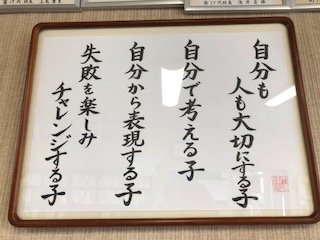 自分も
人も大切にする子
自分で考える子
自分から表現する子
失敗を楽しみ
チャレンジする子